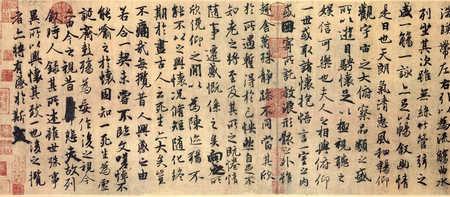 湍暎帶左右引以為流觴曲水
列坐其次雖無絲竹管弦之
盛一觴一詠亦足以暢敘幽情
是日也天朗氣清惠風和暢仰
觀宇宙之大俯察品類之盛
所以遊目騁懷足以極視聽之
娛信可樂也夫人之相與俯仰
一世或取諸懷抱悟言一室之內
或因寄所託放浪形骸之外雖
趣舍萬殊靜躁不同當其欣
於所遇蹔得於己怏然自足不
知老之將至及其所之既惓情
隨事遷感慨係之矣向之所
欣俛仰之間以為陳跡猶不
能不以之興懷況脩短隨化終
期於盡古人云死生亦大矣豈
不痛哉每攬昔人興感之由
若合一契未嘗不臨文嗟悼不
能喻之於懷固知一死生為虛
誕齊彭殤為妄作後之視今
亦由今之視昔悲夫故列
敘時人錄其所述雖世殊事
異所以興懷其致一也後之攬
者亦將有感於斯